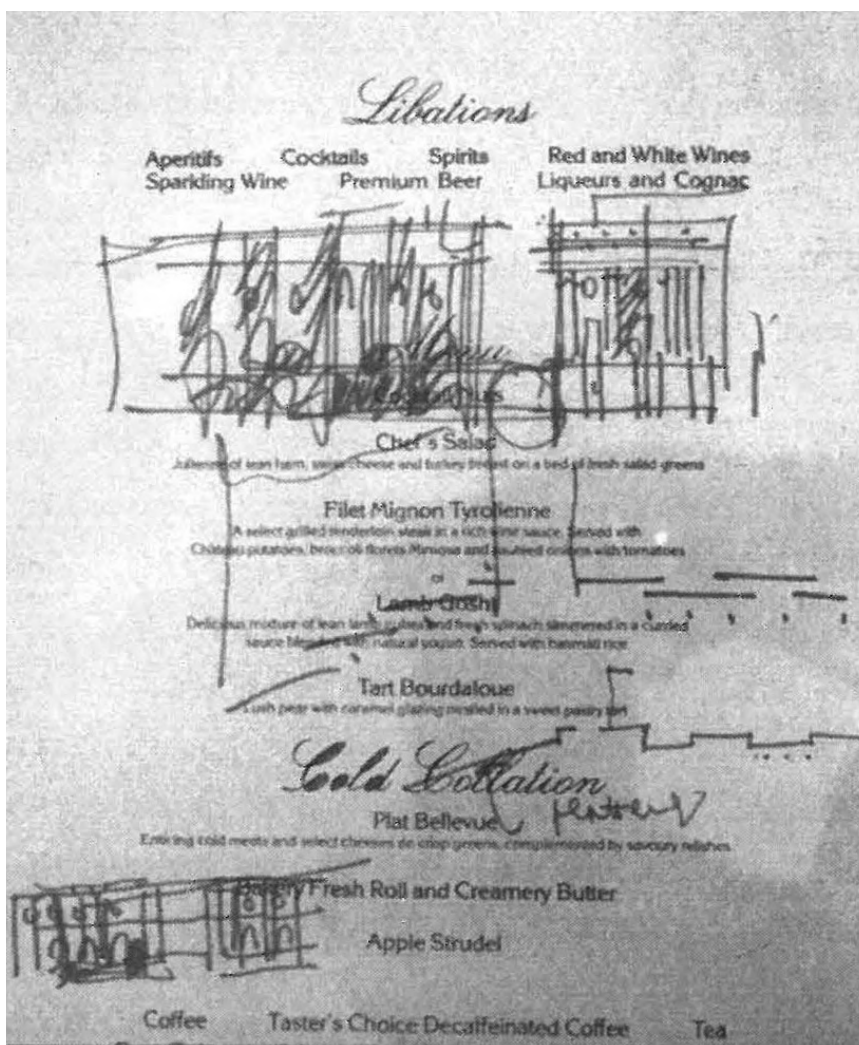 Libations
Aperitifs Cocktails Spirits Red and White Wines
Sparkling Wine Premium Beer Liqueurs and Cognac
Menu
Chef's Salad
Julienne of lean ham, swiss cheese and turkey breast on a bed of fresh salad greens
Filet Mignon Tyrolienne
A select grilled tenderloin steak in a rich wine sauce. Served with
Château potatoes, broccoli florets Mimosa and sautéed onions with tomatoes
or
Lamb Gosht
Delicious mixture of lean lamb cubes and fresh spinach simmered in a curried
sauce blended with natural yogurt. Served with basmati rice
Tart Bourdaloue
Lush pear with caramel glazing nestled in a sweet pastry tart
Cold Collation
Plat Bellevue
Enticing cold meats and select cheeses de crisp greens, complemented by savoury relishes
Bakery Fresh Roll and Creamery Butter
Apple Strudel
Coffee Taster's Choice Decaffeinated Coffee Tea